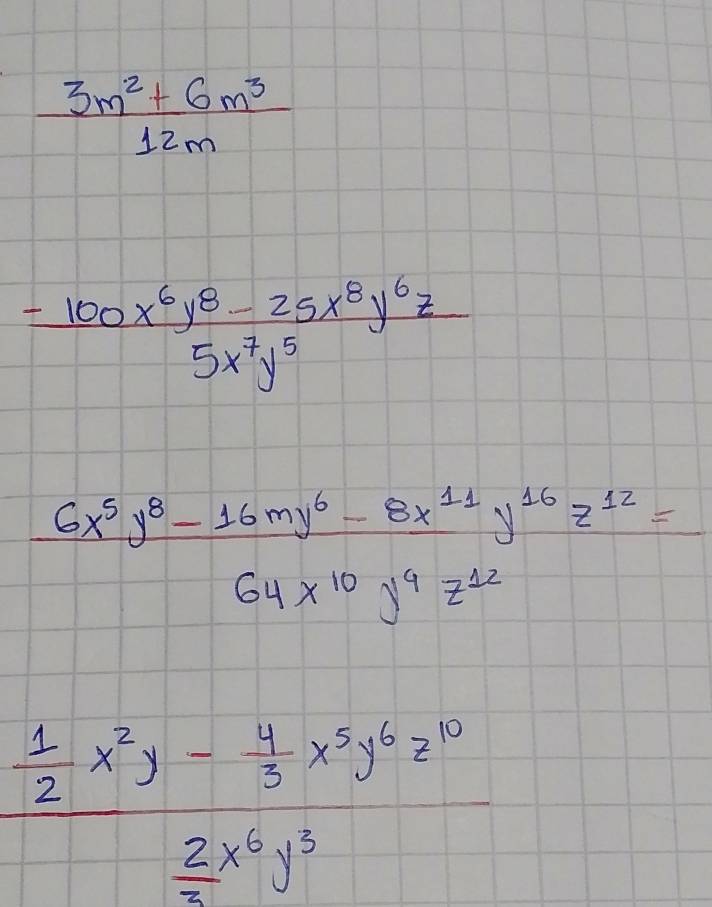 3m² + 6m³
12m
- 100x⁶y⁸ - 25x⁸y⁶z
5x⁷y⁵
6x⁵y⁸ - 16my⁶ - 8x¹¹y¹⁶z¹² =
64x¹⁰y⁹z¹²
1/2 x²y - 4/3 x⁵y⁶z¹⁰
2/3 x⁶y³